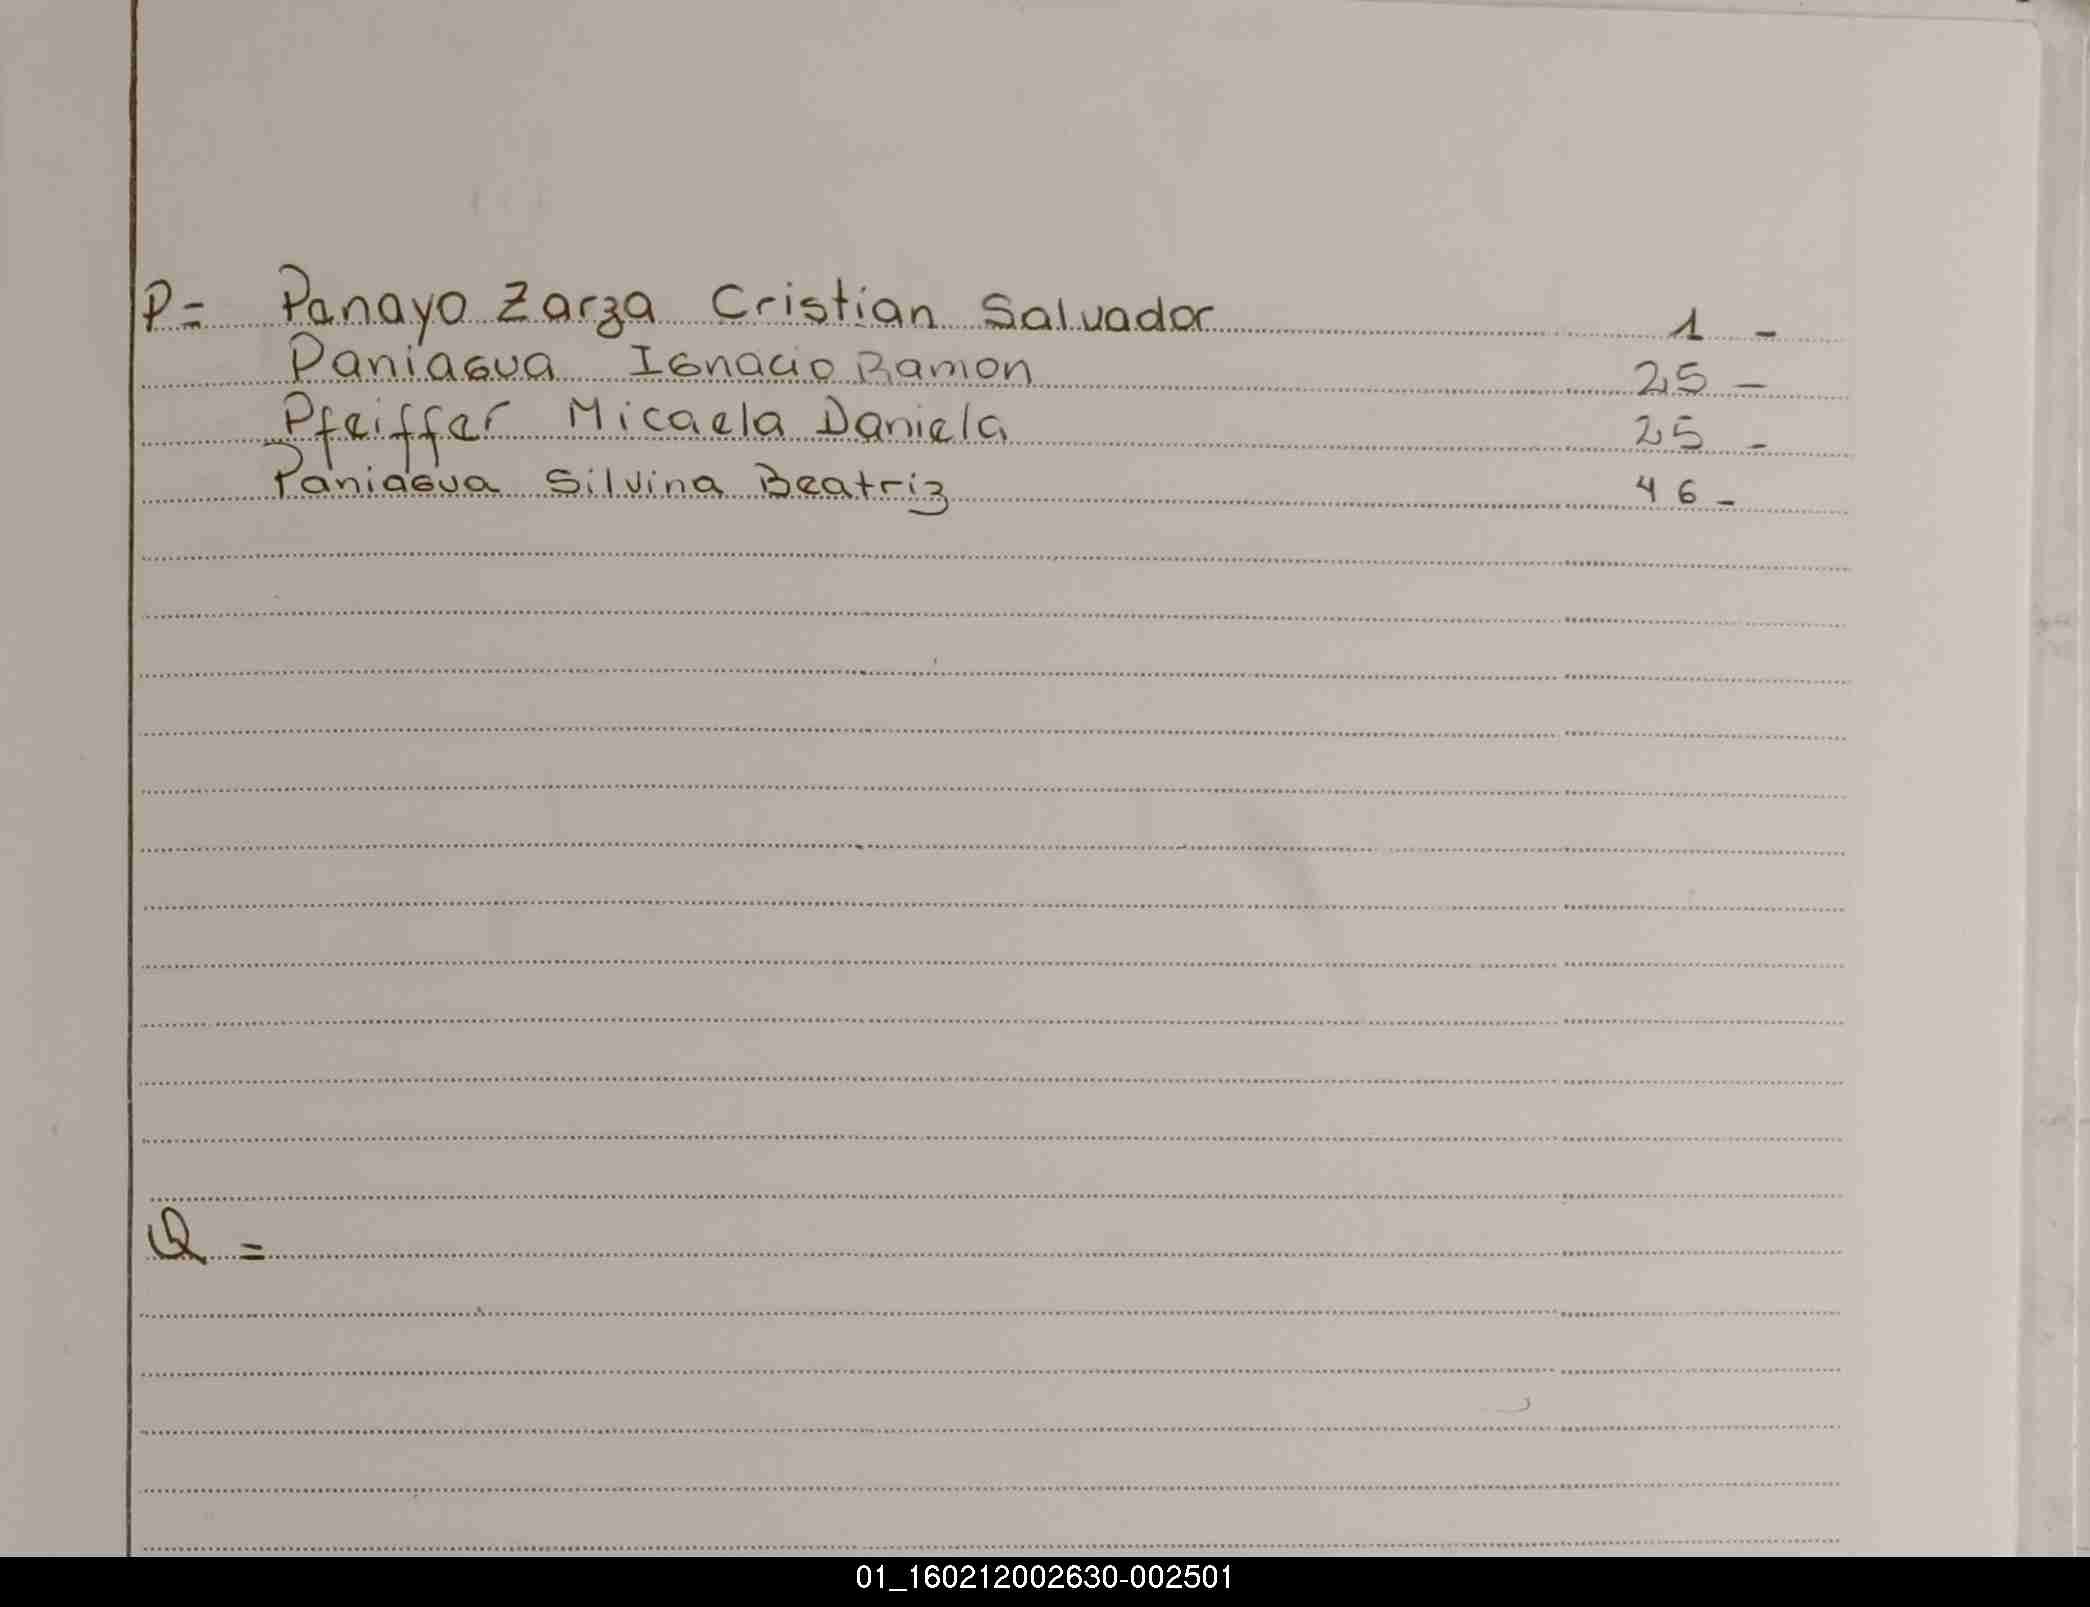 P= Panayo Zarza Cristian Salvador 1 -
Paniagua Ignacio Ramon 25 -
Pfeiffer Micaela Daniela 25 -
Paniagua Silvina Beatriz 46 -
Q =
01_160212002630-002501